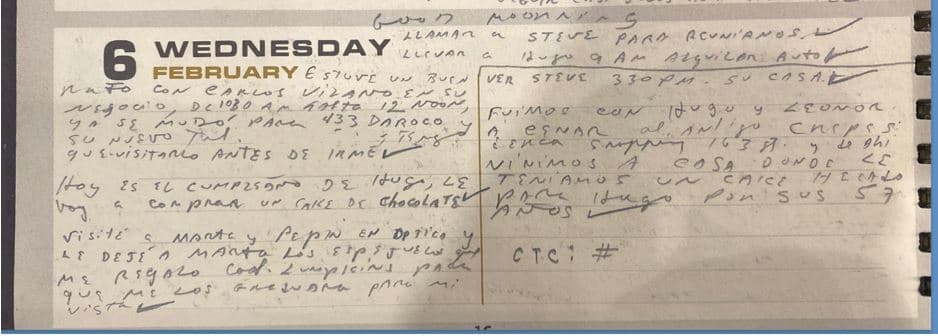 GOOD MOORNING
LLAMAR a STEVE PARA REUNIANOS.
LLEVAR a Hugo a AM Alquilar Auto
6 WEDNESDAY
FEBRUARY ESTUVE UN BUEN
RATO CON CARLOS VIZANO EN SU
NEGOCIO, DE 1030 AM HASTA 12 NOON,
YA SE MUDÓ PARA 433 DAROCO y
SU NUEVO Tel. TENGO
QUE VISITARLO ANTES DE IRME
Hoy ES EL CUMPLEAÑO DE Hugo, LE
voy a COMPRAR UN CAKE DE CHOCOLATE
Visité a MARTA y PEPIN EN OPTICO y
LE DEJÉ A MARTA LOS ESPEJUELOS QUE
ME REGALO Cod. LUMPKINS PARA
QUE ME LOS GRADUARA PARA MI
VISTA
VER STEVE 330 PM. SU CASA.
FUIMOS CON Hugo y LEONOR
A CENAR al Antiguo CREPES:
CERCA 163 St. y de AHI
NINIMOS A CASA DONDE LE
TENIAMOS UN CAKE HELADO
PARA Hugo POR SUS 57
AÑOS
CTC: #